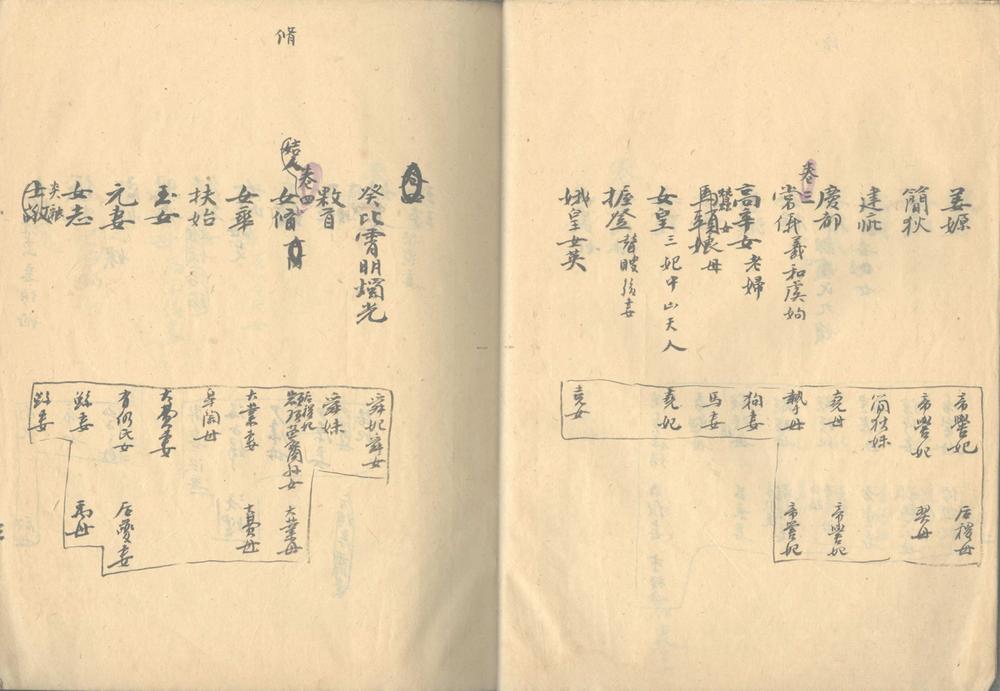 姜嫄
簡狄
建疪
慶都
卷三
常儀羲和虞姁
高辛女老婦
蠶女
馬頭娘母
女皇三妃中山天人
握登瞽瞍後妻
娥皇女英
帝嚳妃 后稷母
帝嚳妃 契母
簡狄妹
堯母 帝嚳妃
摯母 帝嚳妃
狗妻
馬妻
堯妃
堯女
脩
癸比霄明燭光
敤首
卷四
女脩
女華
扶始
玉女
元妻
女志
士敬
舜妃舜女
舜妹
大業母
大業妻 大費母
皋陶母
大費妻
有仍氏女 后夔妻
鯀妻 禹母
鯀妻